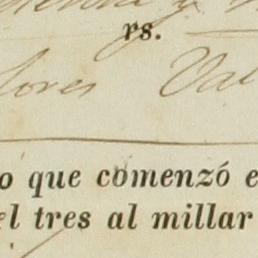 y
rs.
lores Val
o que comenzó e
el tres al millar